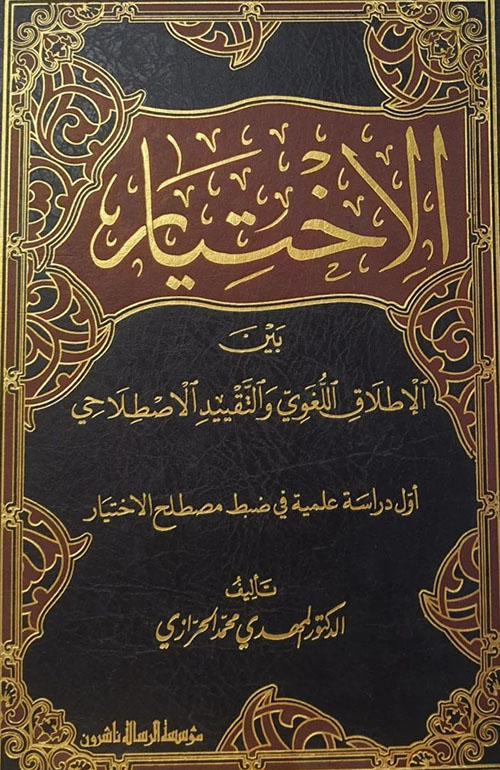 الاِخْتِيَار
بَيْنَ
الْإِطْلَاقِ اللُّغَوِيّ وَالتَّقْيِيدِ الْاِصْطِلَاحِي
أوّل دراسة علمية في ضبط مصطلح الاختيار
تَأليفُ
الدكتور المهدي محمّد الحرَازي
مؤسسة الرسالة ناشرون